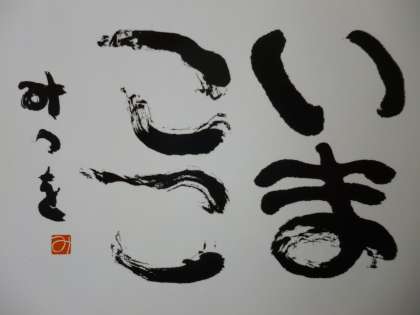 いま
ここ
みつを